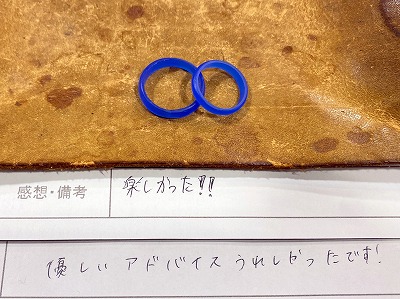 感想・備考
楽しかった!!
優しいアドバイスうれしかったです!